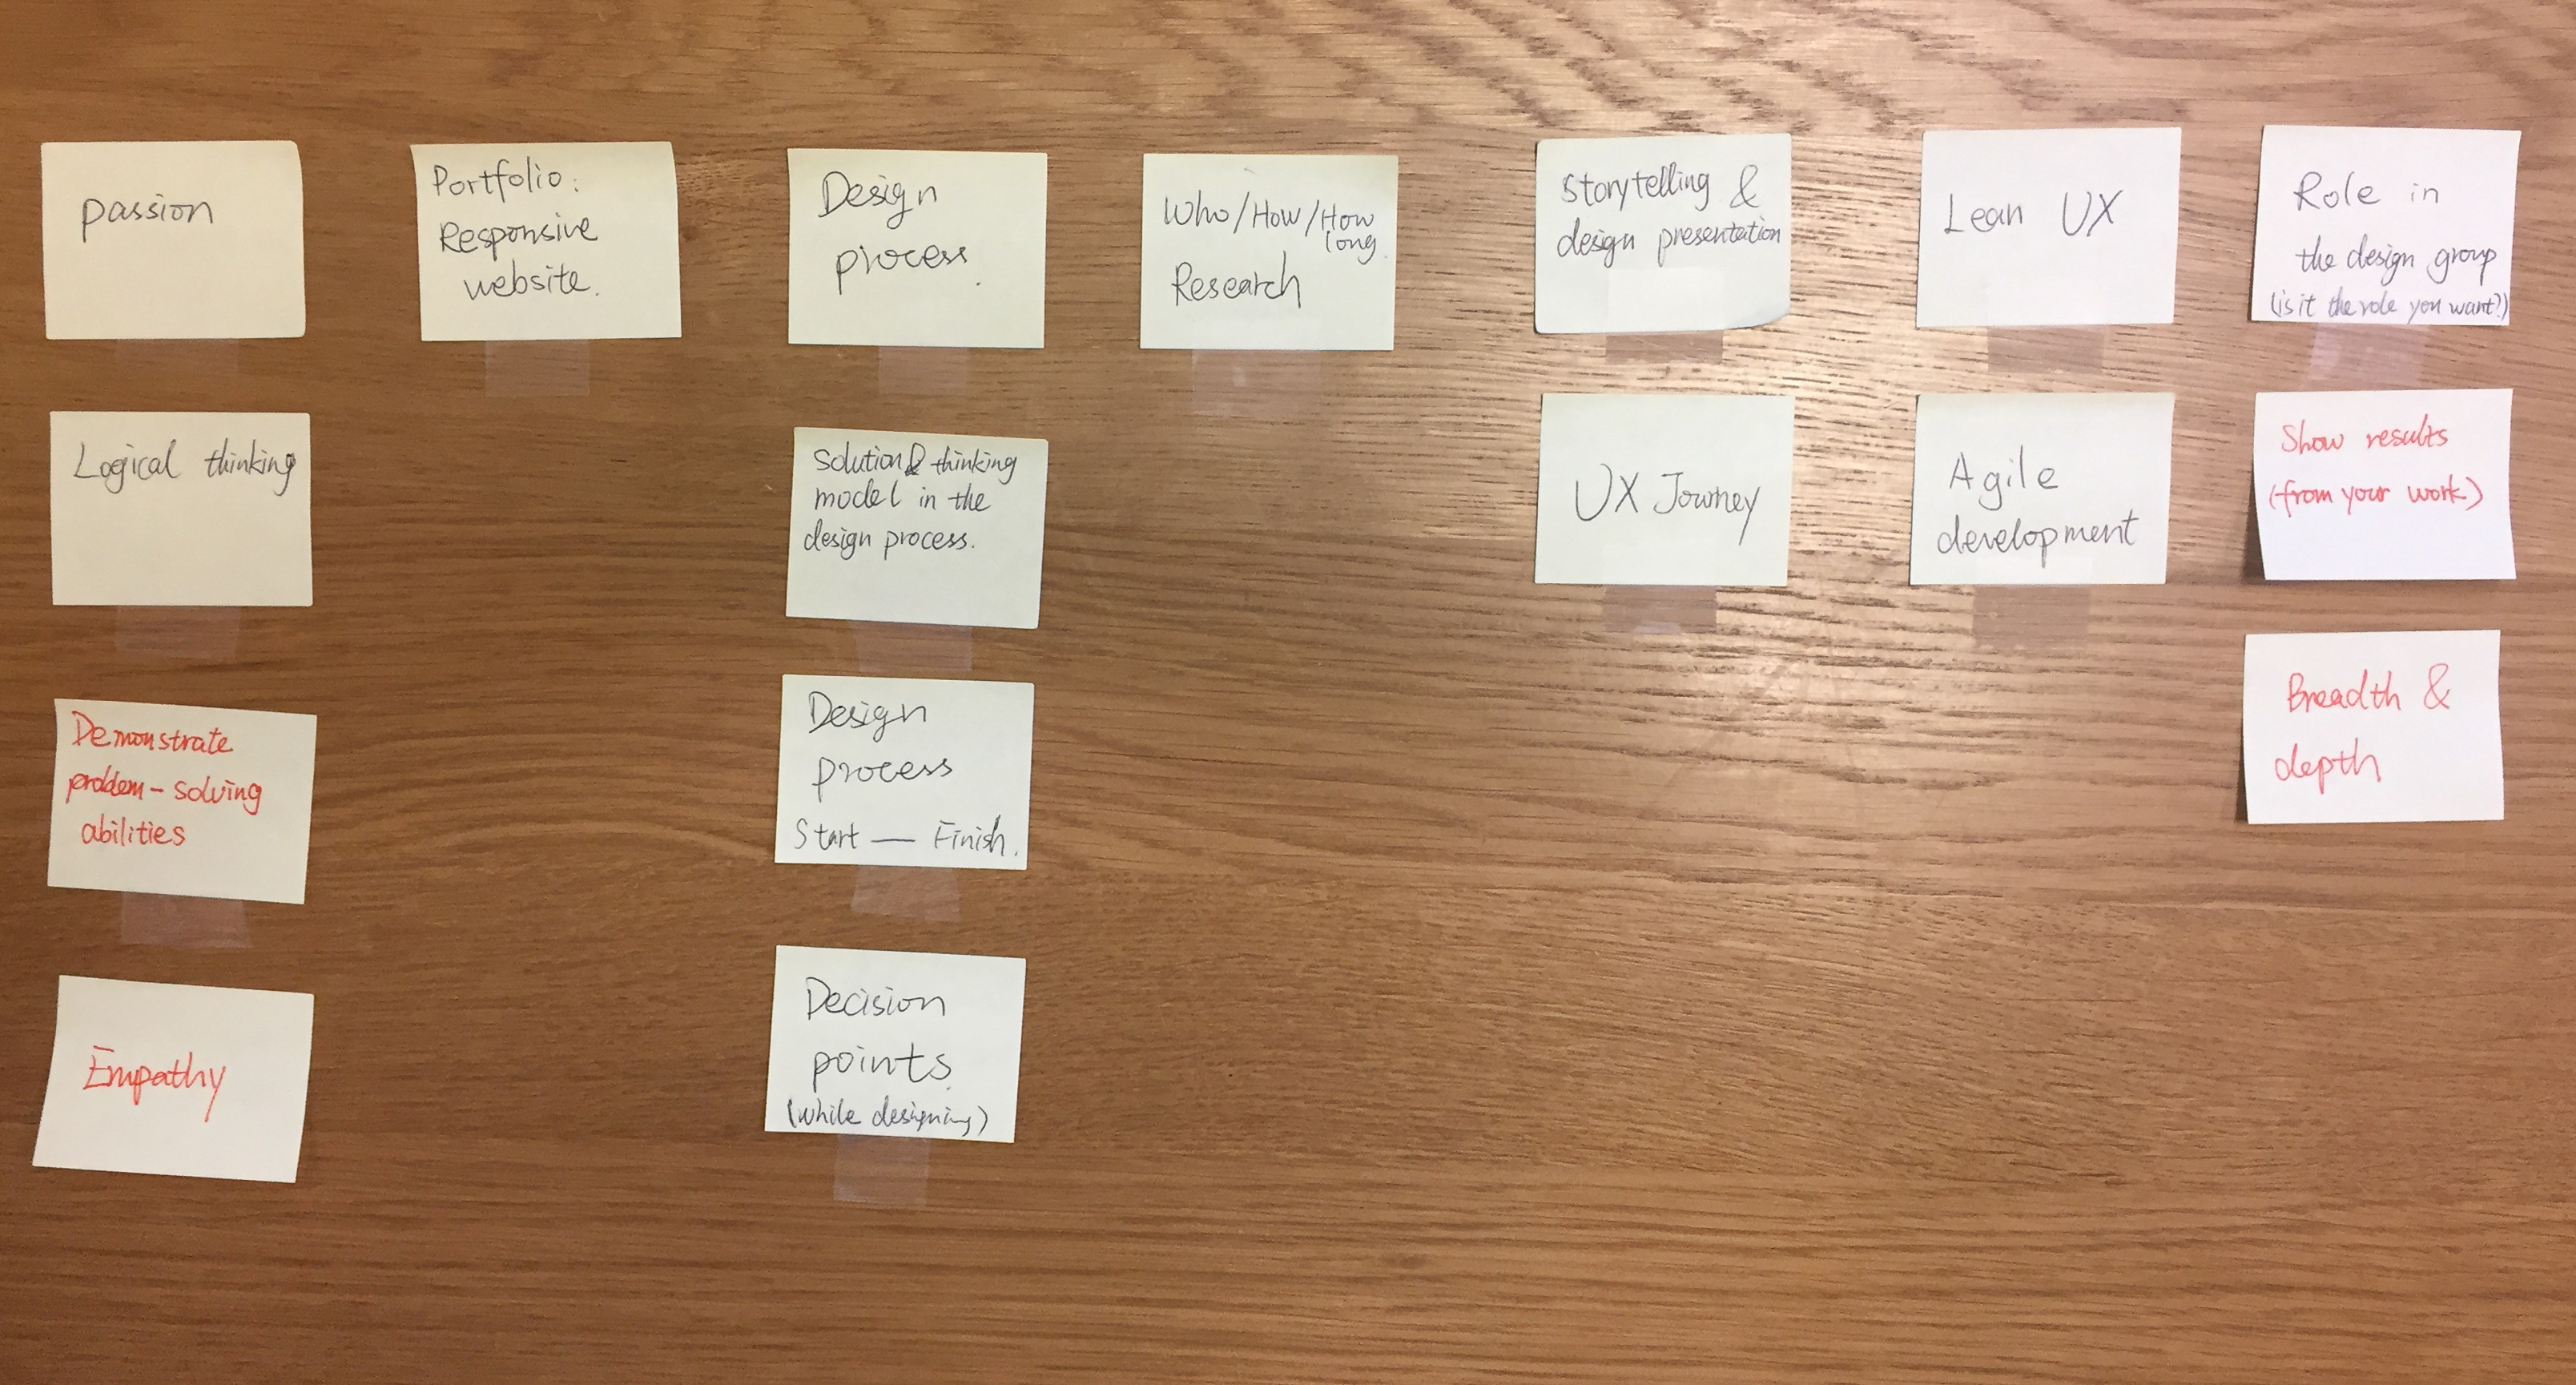 passion
Logical thinking
Demonstrate
problem-solving
abilities
Empathy
Portfolio:
Responsive
website.
Design
process.
Solution & thinking
model in the
design process.
Design
process
Start — Finish.
Decision
points
(while designing)
Who/How/How
long.
Research
Storytelling &
design presentation
UX Journey
Lean UX
Agile
development
Role in
the design group
(is it the role you want?)
Show results
(from your work)
Breadth &
depth